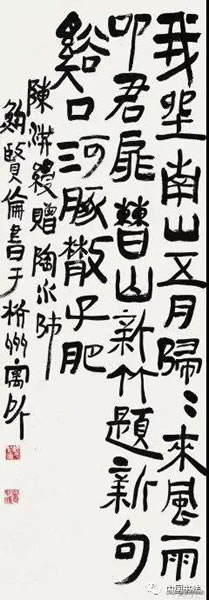 我坐南山五月歸〻來風雨
叩君扉山新竹題新句
谿口河豚子肥
陳洪綬贈陶水師
鮑賢倫書于杭州寓所
中国书法